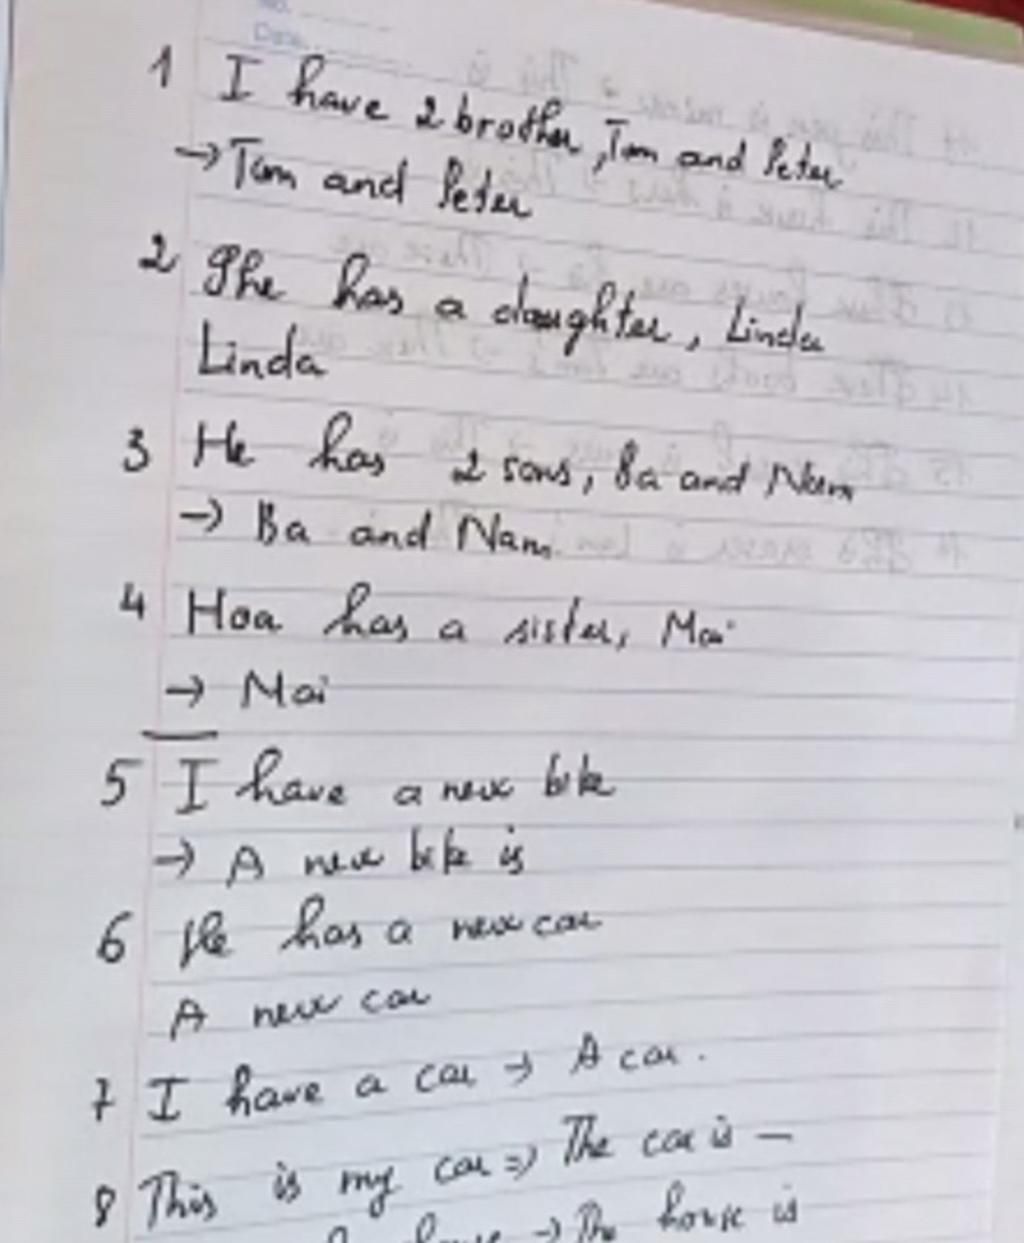 No.
Date
1 I have 2 brother, Tom and Peter
→ Tom and Peter
2 She has a daughter, Linda
Linda
3 He has 2 sons, Ba and Nam
→ Ba and Nam
4 Hoa has a sister, Mai
→ Mai
5 I have a new bike
→ A new bike is
6 He has a new car
A new car
7 I have a car → A car.
8 This is my car => The car is —
house → The house is